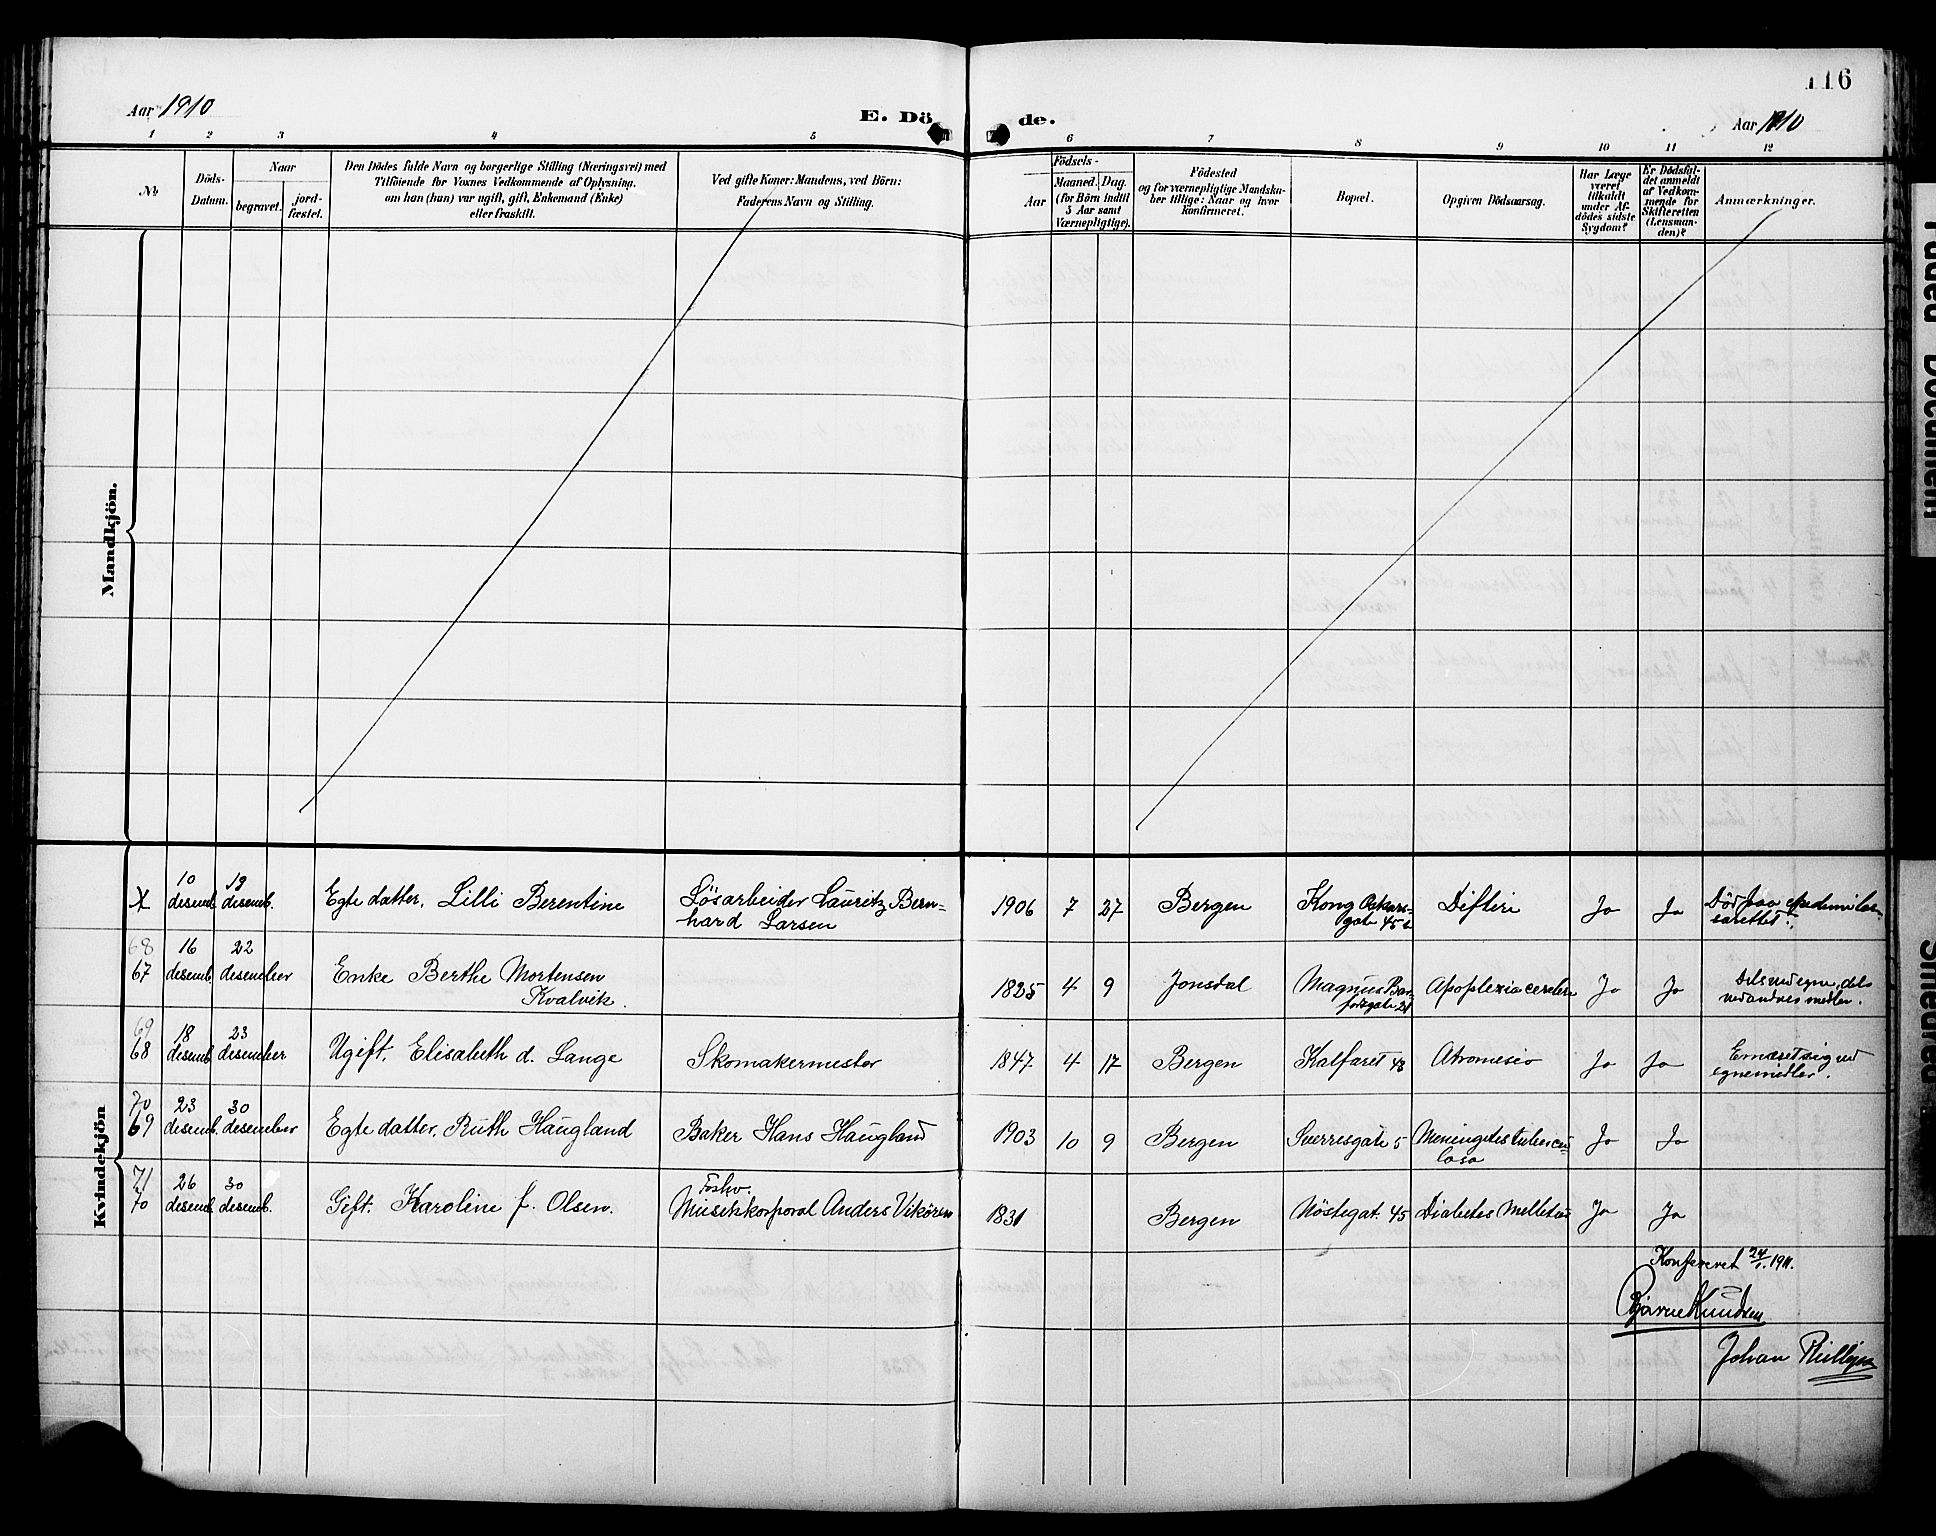 116
Aar 1910
E. Dö
de.
Aar 1910
1 2 3 4 5 6 7 8 9 10 11 12
No
Döds-
Datum.
Naar
begravet.
jord-
fæstet.
Den Dödes fulde Navn og borgerlige Stilling (Næringsvei) med
Tilföiende for Voxnes Vedkommende af Oplysning.
om han (hun) var ugift, gift, Enkemand (Enke)
eller fraskilt.
Ved gifte Koner: Mandens, ved Börn:
Faderens Navn og Stilling.
Födsels-
Aar
Maaned. Dag.
(for Börn indtil
5 Aar samt
Værnepligtige).
Födested
og for værnepligtige Mandsku-
ber tillige: Naar og hvor
konfirmeret.
Bopæl.
Opgiven Dödsaarsag.
Har Læge
været
tilkaldt
under Af-
dödes sidste
Sygdom?
Er Dødsfal-
det anmeldt
af Vedkom-
mende for
Skifteretten
(Lensman-
den)?
Anmærkninger.
Mandkjön.
Kvindekjön
X
10
desemb.
13
desemb.
Egte datter, Lilli Berentine
Lösarbeider Lauritz Bern-
hard Larsen
1906 7 27
Bergen
Kong Oskars-
gate 45
Difteri
Ja Ja
Död paa epidemilas-
sarettet.
68
67
16
desemb.
22
desember
Enke Berthe Mortensen
Kvalvik.
1825 4 9
Jonsdal
Magnus Bar-
fodsgate 21
Apoplexia cerebri
Ja Ja
Dels ved egne, dels
ved andres midler.
69
68
18
desemb.
23
desember
Ugift. Elisabeth d. Lange
Skomakermester
1847 4 17
Bergen
Kalfaret 48
Ja Ja
Ernæret sig ved
egne midler.
70
69
23
desemb.
30
desember
Egte datter, Ruth Haugland
Baker Hans Haugland
1903 10 9
Bergen
Sverresgate 5
Meningitis tubercu-
losa
Ja Ja
71
70
26
desemb.
30
desemb.
Gift. Karoline f. Olsen.
Forhv.
Musikkorporal Anders Vikören
1831
Bergen
Nöstegat. 45
Diabetes Mellitus
Ja Ja
Konfereret 24/1. 1911.
Bjarne Knudsen
Johan
Faded Document
Smeared